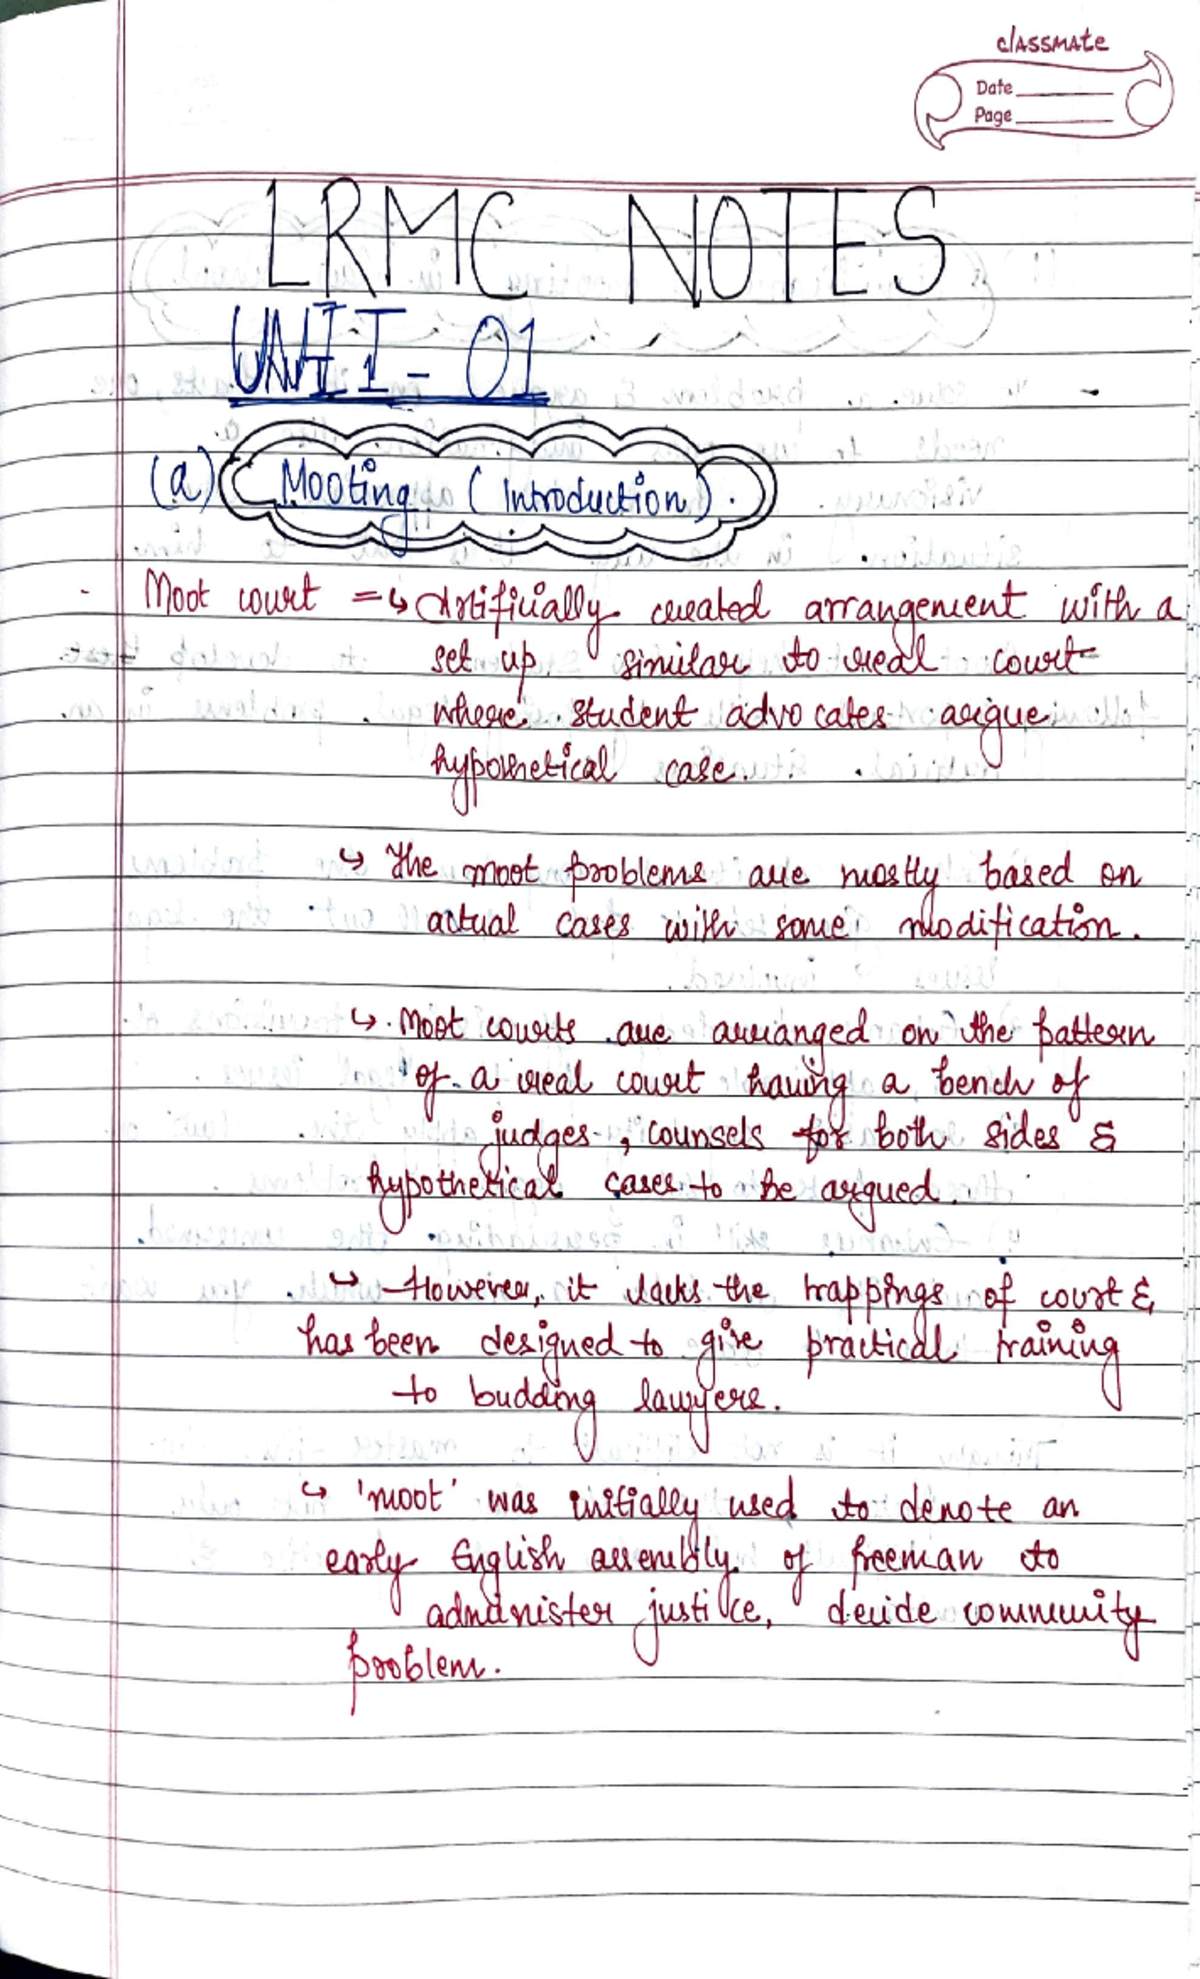 classmate
Date
Page
LRMC NOTES
UNIT - 01
(a) Mooting (Introduction).
- Moot court = ↳ Artificially created arrangement with a
set up similar to real court
where student advocates argue
hypothetical case.
↳ The moot problems are mostly based on
actual cases with some modification.
↳ Moot courts are arranged on the pattern
of a real court having a bench of
judges, counsels for both sides &
hypothetical cases to be argued.
↳ However, it lacks the trappings of court &
has been designed to give practical training
to budding lawyers.
↳ 'moot' was initially used to denote an
early English assembly of freeman to
administer justice, decide community
problem.